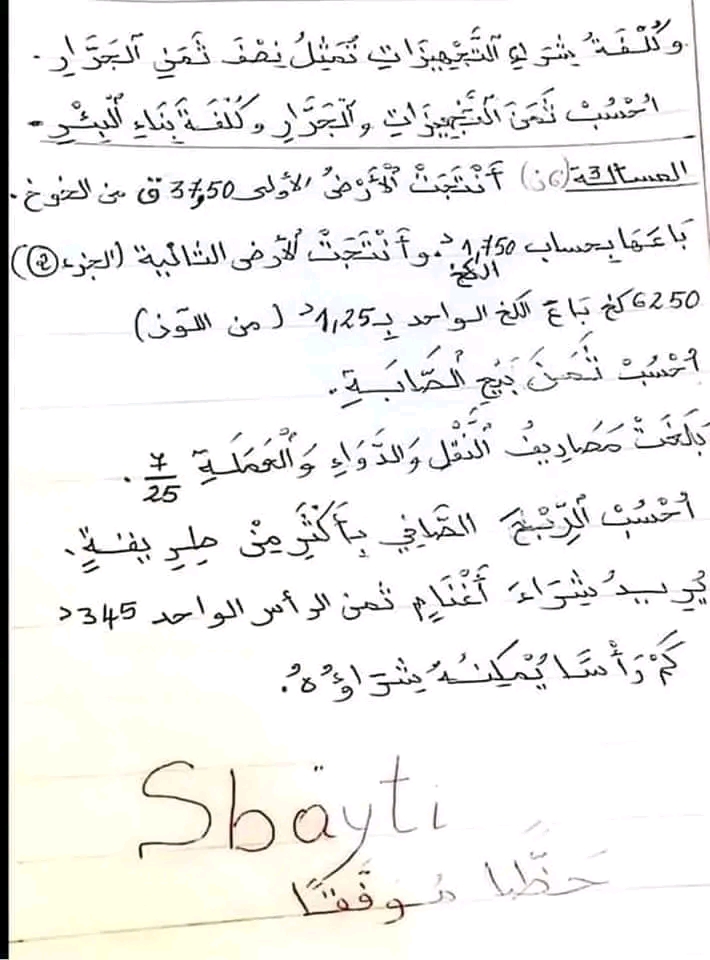 وَكُلْفَةُ شِرَاءِ التَّجْهِيزَاتِ تُمَثِّلُ نِصْفَ ثَمَنِ الجَرَّارِ.
اُحْسُبْ ثَمَنَ التَّجْهِيزَاتِ وَالجَرَّارِ وَكُلْفَةَ بِنَاءِ الْبِئْرِ.
المسألة 3 (6ن) أَنْتَجَتْ الْأَرْضُ الأولى 37,50 ق من الخوخ.
بَاعَهَا بِحساب 1,750د الكغ. وأَنْتَجَتْ الأرض الثانية (الجزء 2)
6250 كغ بَاعَ الكغ الواحد بـ 1,25د (من اللوز)
اُحْسُبْ ثَمَنَ بَيْعِ الصَّابَةِ.
بَلَغَتْ مَصَارِيفُ النَّقْلِ وَالدَّوَاءِ وَالْعَمَلَةِ 7/25.
اُحْسُبْ الرِّبْحَ الصَّافِي بِأَكْثَرِ مِنْ طَرِيقَةٍ.
يُرِيدُ شِرَاءَ أَغْنَامٍ ثمن الرأس الواحد 345د
كَمْ رَأْسًا يُمْكِنُهُ شِرَاؤُهُ.
Sbayti
حَظًّا مُوَفَّقًا